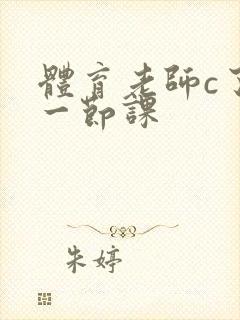 體育老師c了
一節課
朱婷